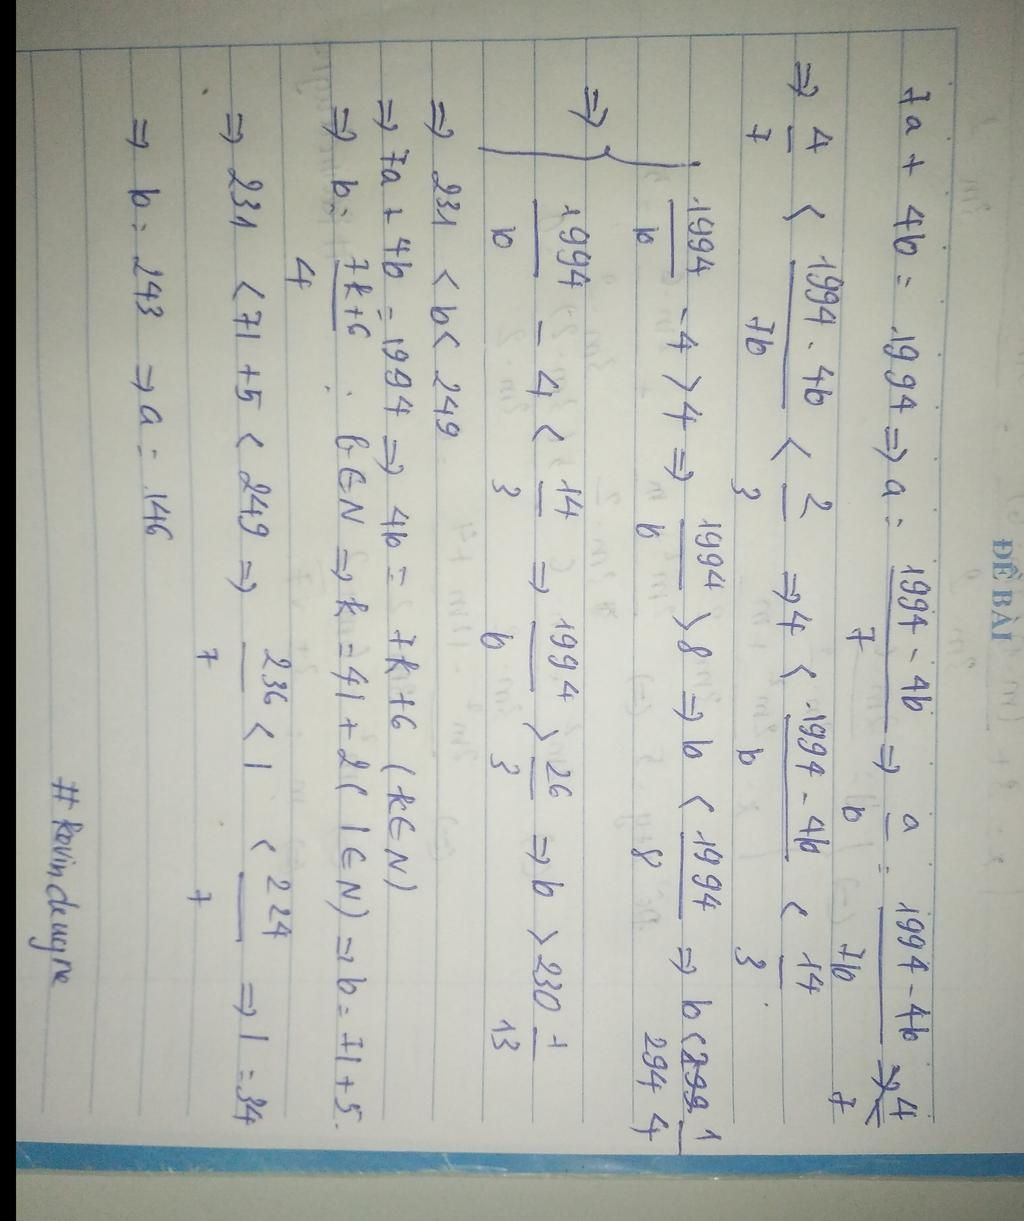 ĐỀ BÀI
7a + 4b = 1994 ⇒ a = (1994 - 4b)/7 ⇒ a/b = (1994 - 4b)/7b ⇒ 4/7 <
⇒ 4/7 < (1994 - 4b)/7b < 2/3 ⇒ 4 < (1994 - 4b)/b < 14/3
⇒ { 1994/b - 4 > 4 ⇒ 1994/b > 8 ⇒ b < 1994/8 ⇒ b < 1/4
1994/b - 4 < 14/3 ⇒ 1994/b > 26/3 ⇒ b > 230 1/13
⇒ 231 < b < 249
⇒ 7a + 4b = 1994 ⇒ 4b = 7k+6 (k∈N)
⇒ b = (7k+6)/4 . b∈N ⇒ k = 4l + 2( l∈N) ⇒ b = 7l + 5.
⇒ 231 < 7l + 5 < 249 ⇒ 236/7 < l < 224/7 ⇒ l = 34
⇒ b = 243 ⇒ a = 146